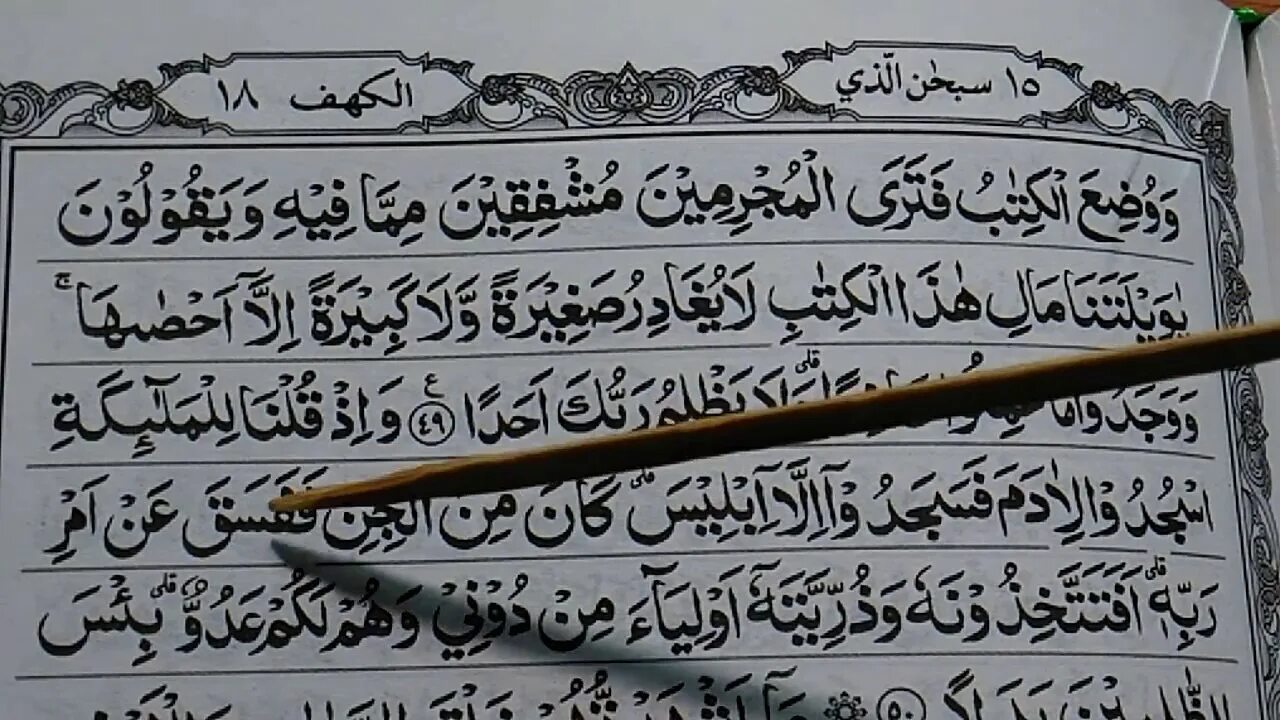 ١٥ سبحٰن الّذي
الكهف ١٨
وَوُضِعَ الْكِتٰبُ فَتَرَى الْمُجْرِمِيْنَ مُشْفِقِيْنَ مِمَّا فِيْهِ وَيَقُوْلُوْنَ
يٰوَيْلَتَنَا مَالِ هٰذَا الْكِتٰبِ لَا يُغَادِرُ صَغِيْرَةً وَّلَا كَبِيْرَةً اِلَّآ اَحْصٰىهَا ۚ
وَوَجَدُوْا مَا وَلَا يَظْلِمُ رَبُّكَ اَحَدًا ࣖ ٤٩ وَاِذْ قُلْنَا لِلْمَلٰۤىِٕكَةِ
اسْجُدُوْا لِاٰدَمَ فَسَجَدُوْٓا اِلَّآ اِبْلِيْسَۗ كَانَ مِنَ الْجِنِّ فَفَسَقَ عَنْ اَمْرِ
رَبِّهٖۗ اَفَتَتَّخِذُوْنَهٗ وَذُرِّيَّتَهٗٓ اَوْلِيَاۤءَ مِنْ دُوْنِيْ وَهُمْ لَكُمْ عَدُوٌّۗ بِئْسَ
الظّٰلِمِيْنَ بَدَلًا ٥٠